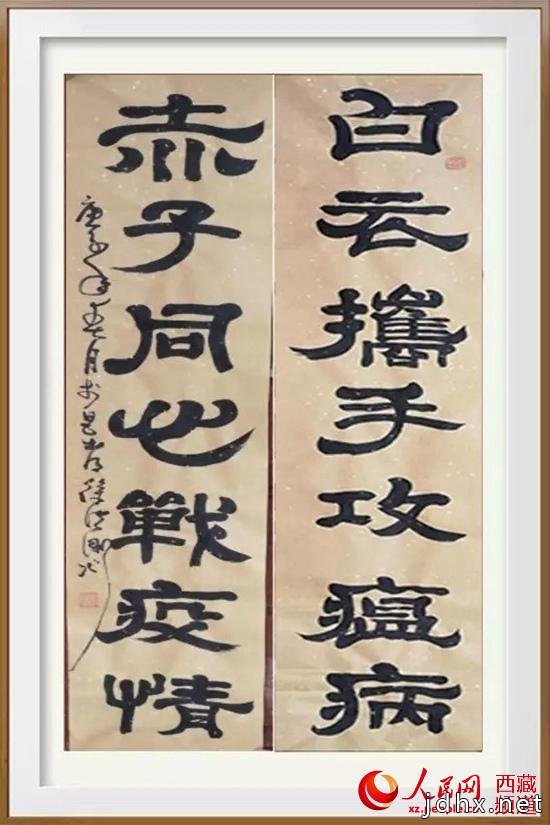 白云攜手攻瘟病
赤子同心戰疫情
庚子年春月
人民网 西藏频道
jdhx.net